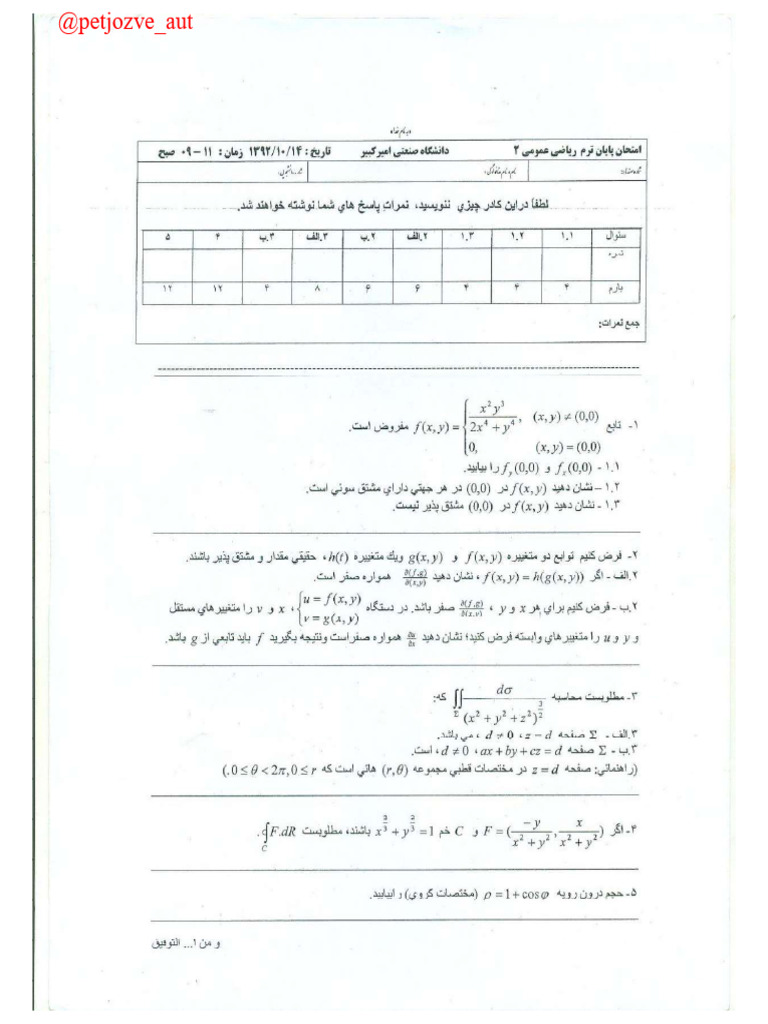 @petjozve_aut
امتحان پایان ترم ریاضی عمومی ۲ دانشگاه صنعتی امیرکبیر تاریخ: ۱۳۹۲/۱۰/۱۴ زمان: ۱۱ – ۰۹ صبح
لطفاً دراین کادر چیزي ننویسید، نمرات پاسخ هاي شما نوشته خواهند شد.
سئوال ۱.۱ ۱.۲ ۱.۳ ۲.الف ۲.ب ۳.الف ۳.ب ۴ ۵
نمره
بارم ۴ ۴ ۴ ۶ ۶ ۸ ۴ ۱۲ ۱۲
جمع نمرات:
۱- تابع f(x,y) = { x²y³ / (2x⁴ + y⁴), (x,y) ≠ (0,0) ; 0, (x,y) = (0,0) مفروض است.
۱.۱ - f_x(0,0) و f_y(0,0) را بیابید.
۱.۲ – نشان دهید f(x,y) در (0,0) در هر جهتي داراي مشتق سوئي است.
۱.۳ - نشان دهید f(x,y) در (0,0) مشتق پذیر نیست.
۲- فرض کنیم توابع دو متغییره f(x,y) و g(x,y) ویك متغییره h(t)، حقیقي مقدار و مشتق پذیر باشند.
۲.الف - اگر f(x,y) = h(g(x,y))، نشان دهید ∂(f,g)/∂(x,y) همواره صفر است.
۲.ب - فرض کنیم براي هر x و y ، ∂(f,g)/∂(x,y) صفر باشد. در دستگاه { u = f(x,y) ; v = g(x,y) ، x و v را متغییرهاي مستقل
و y و u را متغییرهاي وابسته فرض کنید؛ نشان دهید ∂u/∂x همواره صفراست ونتیجه بگیرید f باید تابعي از g باشد.
۳- مطلوبست محاسبه ∬_Σ dσ / (x² + y² + z²)^(3/2) که:
۳.الف - Σ صفحه z = d ، d ≠ 0 ، مي باشد.
۳.ب - Σ صفحه ax + by + cz = d ، d ≠ 0 ، است.
(راهنمائي: صفحه z = d در مختصات قطبي مجموعه (r,θ) هائي است که 0 ≤ θ < 2π, 0 ≤ r.)
۴- اگر F = (−y/(x² + y²), x/(x² + y²)) و C خم x^(2/3) + y^(2/3) = 1 باشند، مطلوبست ∮_C F.dR.
۵- حجم درون رویه ρ = 1 + cos φ (مختصات کروي) را بیابید.
و من ا... التوفیق